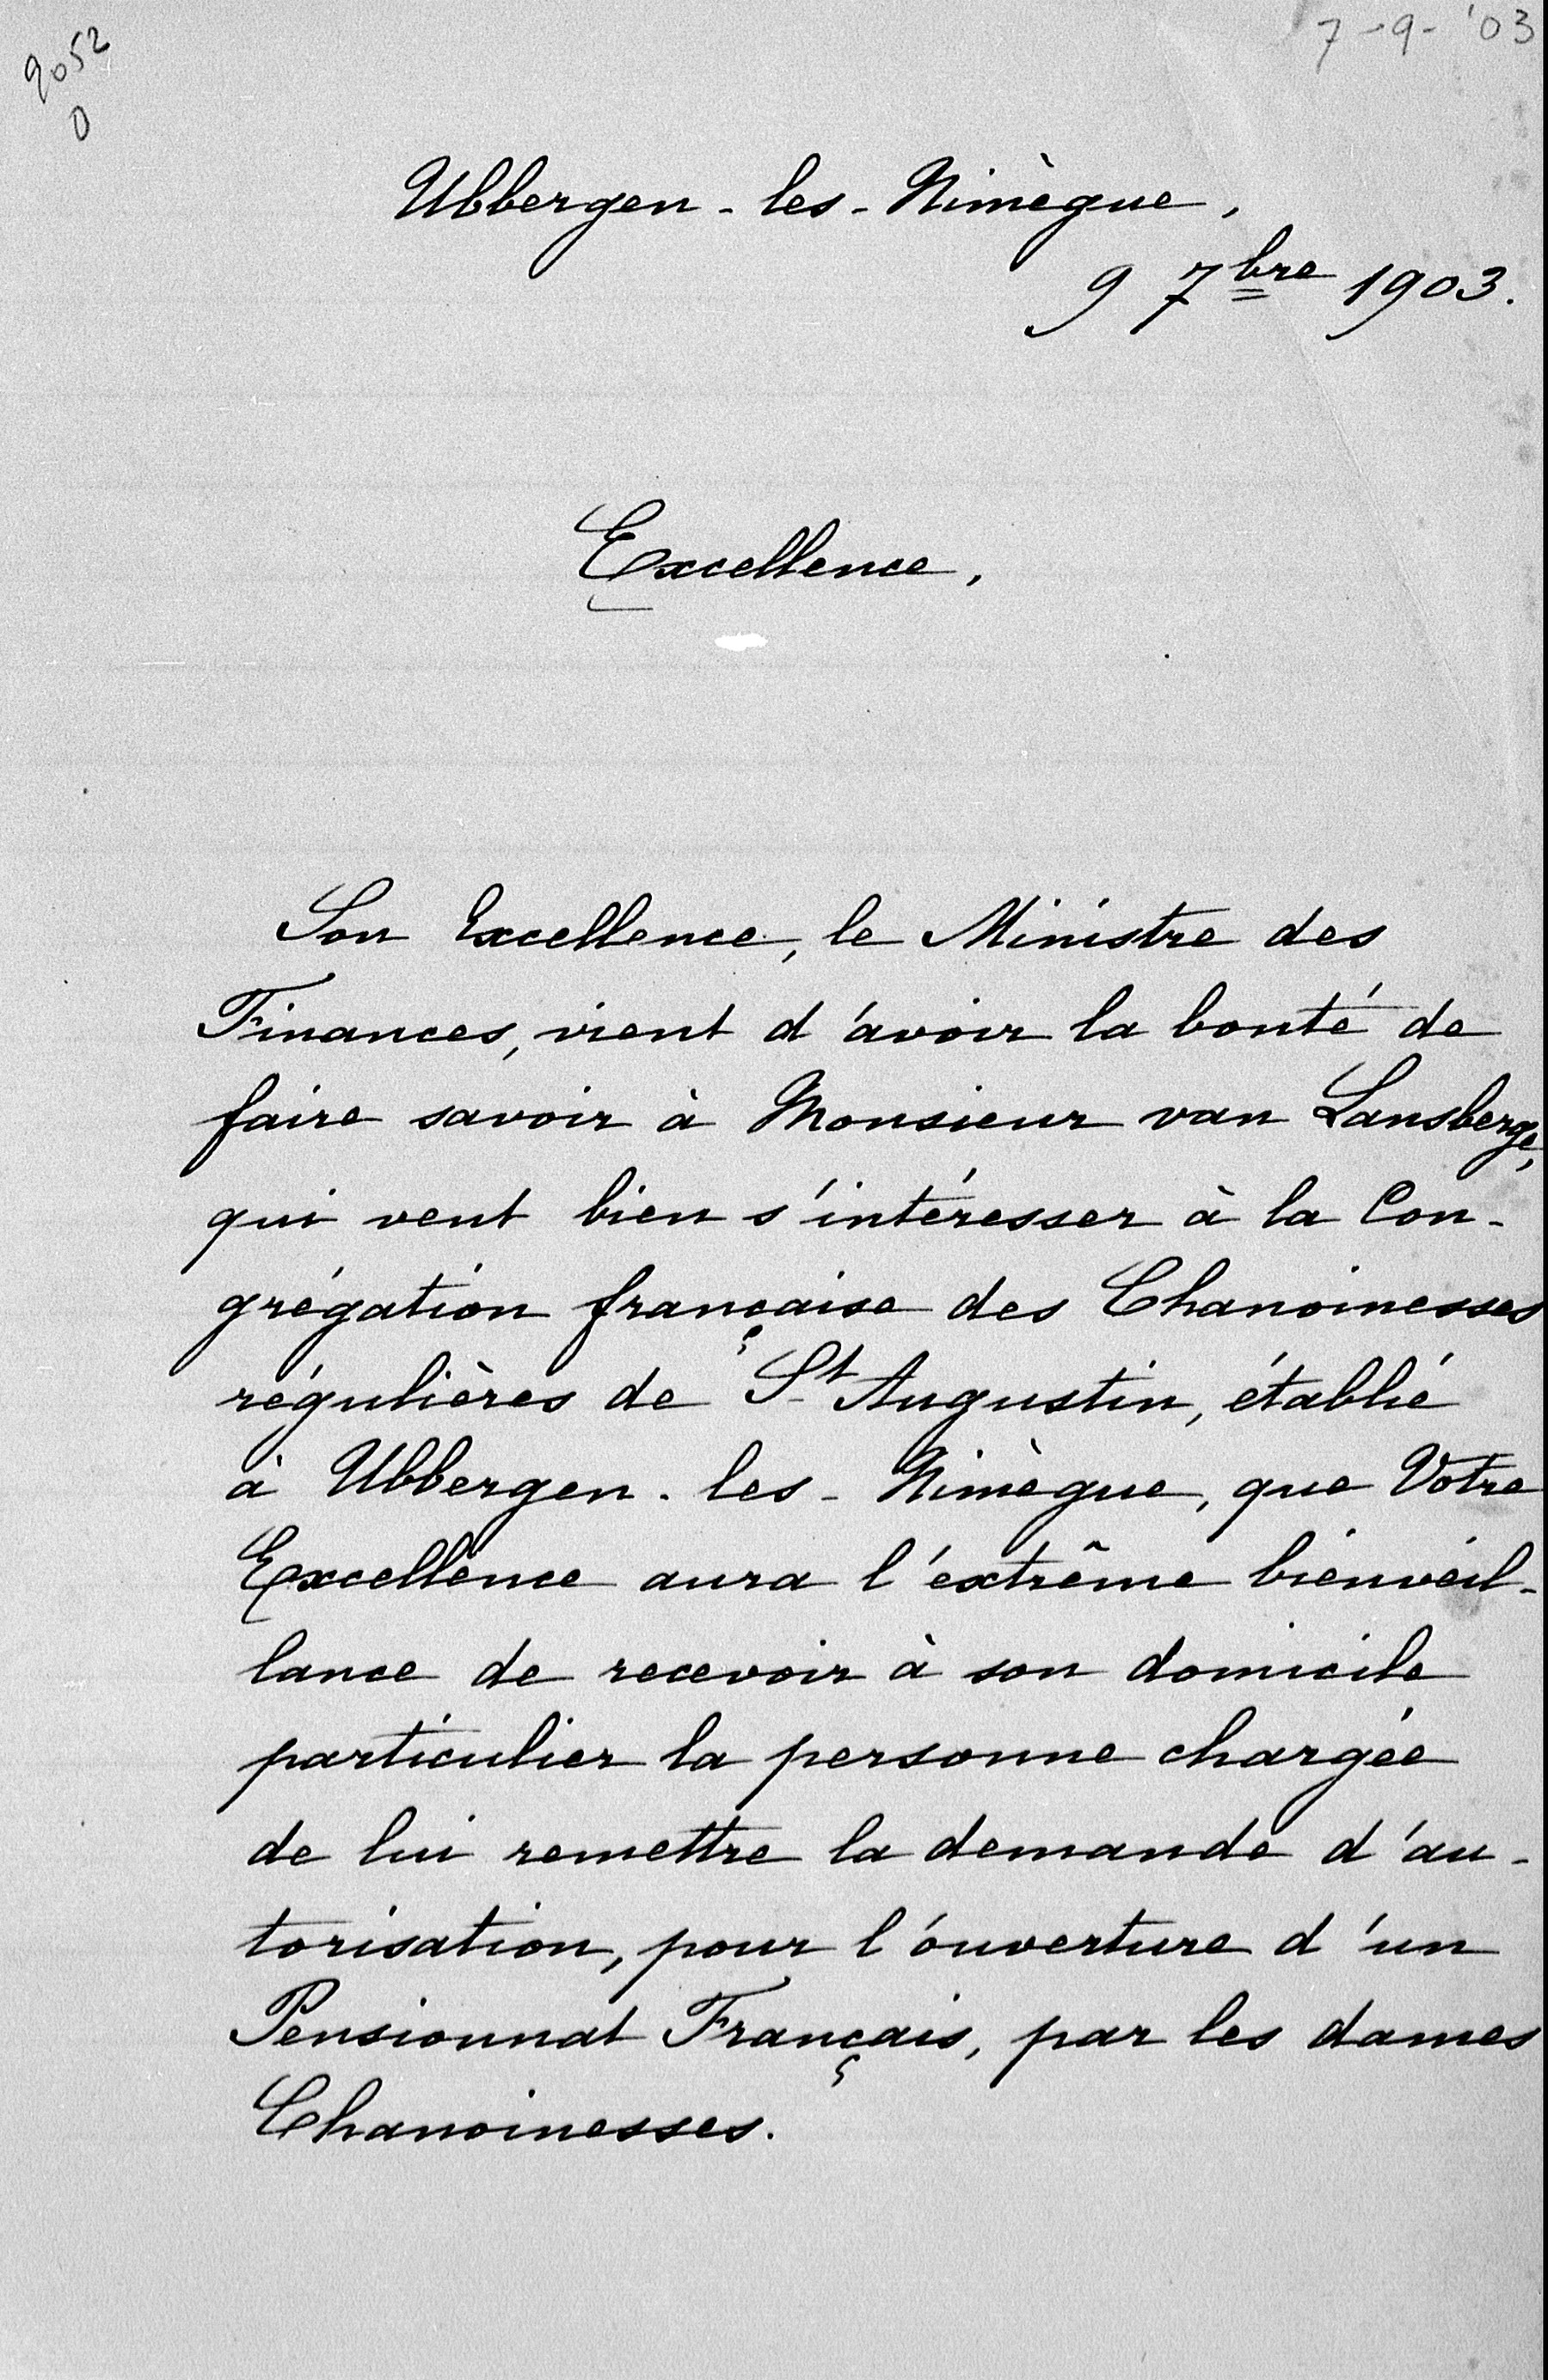 9052
D
7-9-'03
Ubbergen-les-Nimègue,
9 7bre 1903.
Excellence,
Son Excellence, le Ministre des
Finances, vient d'avoir la bonté de
faire savoir à Monsieur van Lansberge,
qui veut bien s'intéresser à la Con-
grégation française des Chanoinesses
régulières de St Augustin, établie
à Ubbergen-les-Nimègue, que Votre
Excellence aura l'extrême bienveil-
lance de recevoir à son domicile
particulier la personne chargée
de lui remettre la demande d'au-
torisation, pour l'ouverture d'un
Pensionnat Français, par les dames
Chanoinesses.